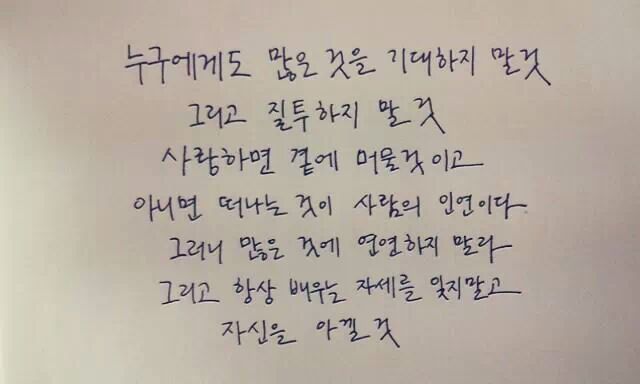 누구에게도 많은 것을 기대하지 말것
그리고 질투하지 말 것
사랑하면 곁에 머물것이고
아니면 떠나는 것이 사람의 인연이다
그러니 많은 것에 연연하지 말라
그리고 항상 배우는 자세를 잊지말고
자신을 아낄 것